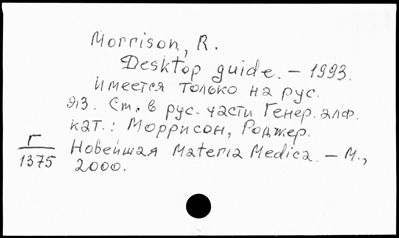 Morrison, R.
Desktop guide. – 1993.
Имеется только на рус.
яз. См. в рус. части Генер. алф.
кат.: Моррисон, Роджер.
Новейшая Materia Medica. – М.,
2000.
Г
1375